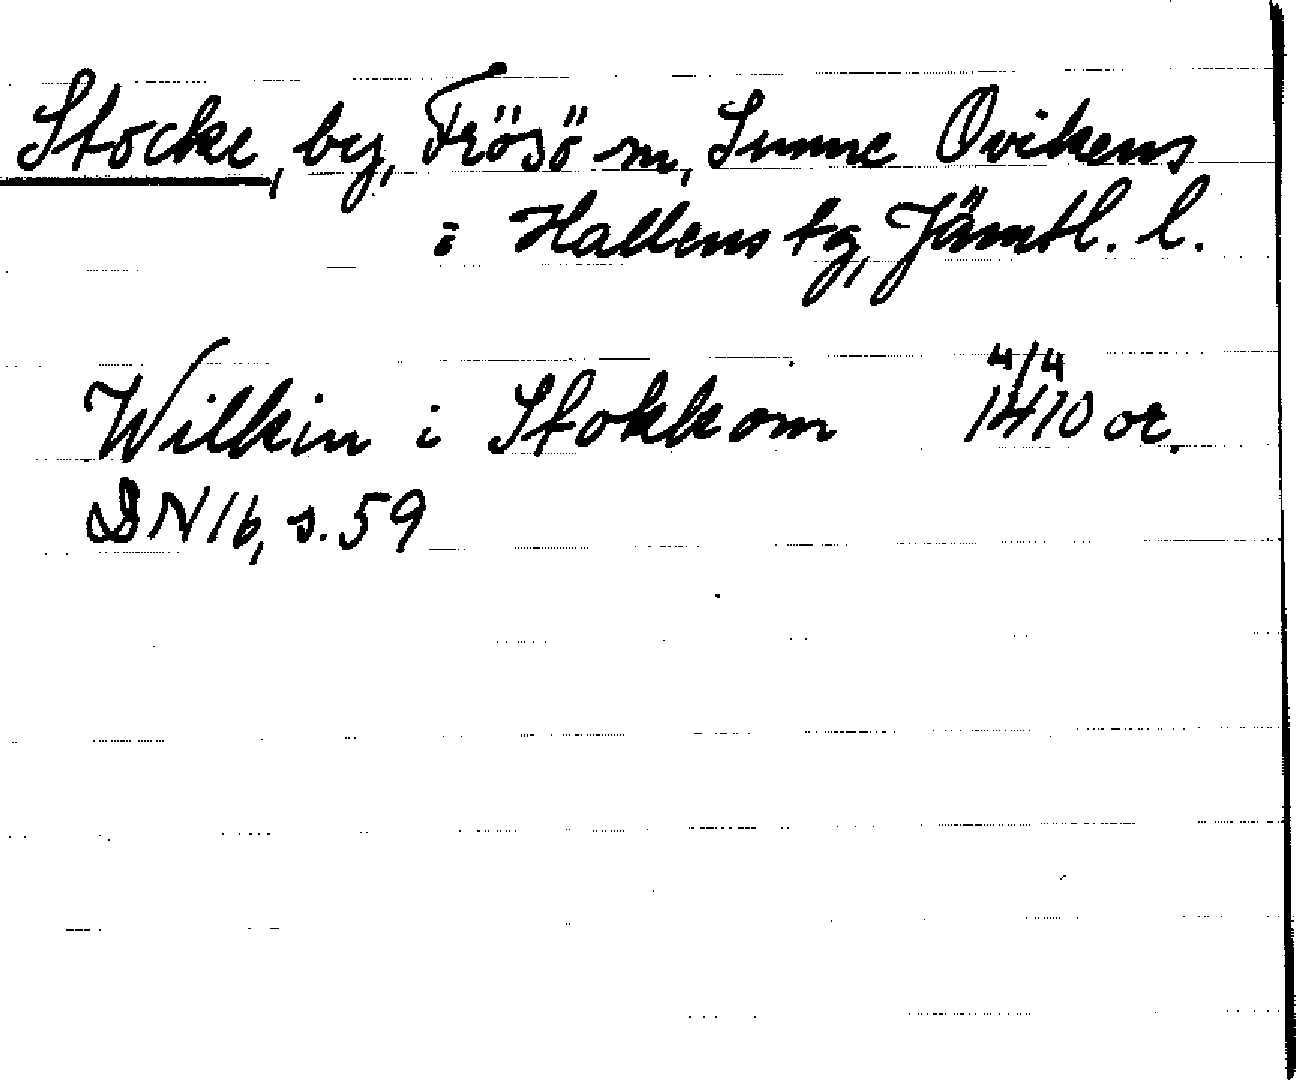 Stocke, by, Frösö sn, Sunne Ovikens
i Hallens tg, Jämtl. l.
Wilkin i Stokkom 4/4 1410 or.
DN 16, s. 59